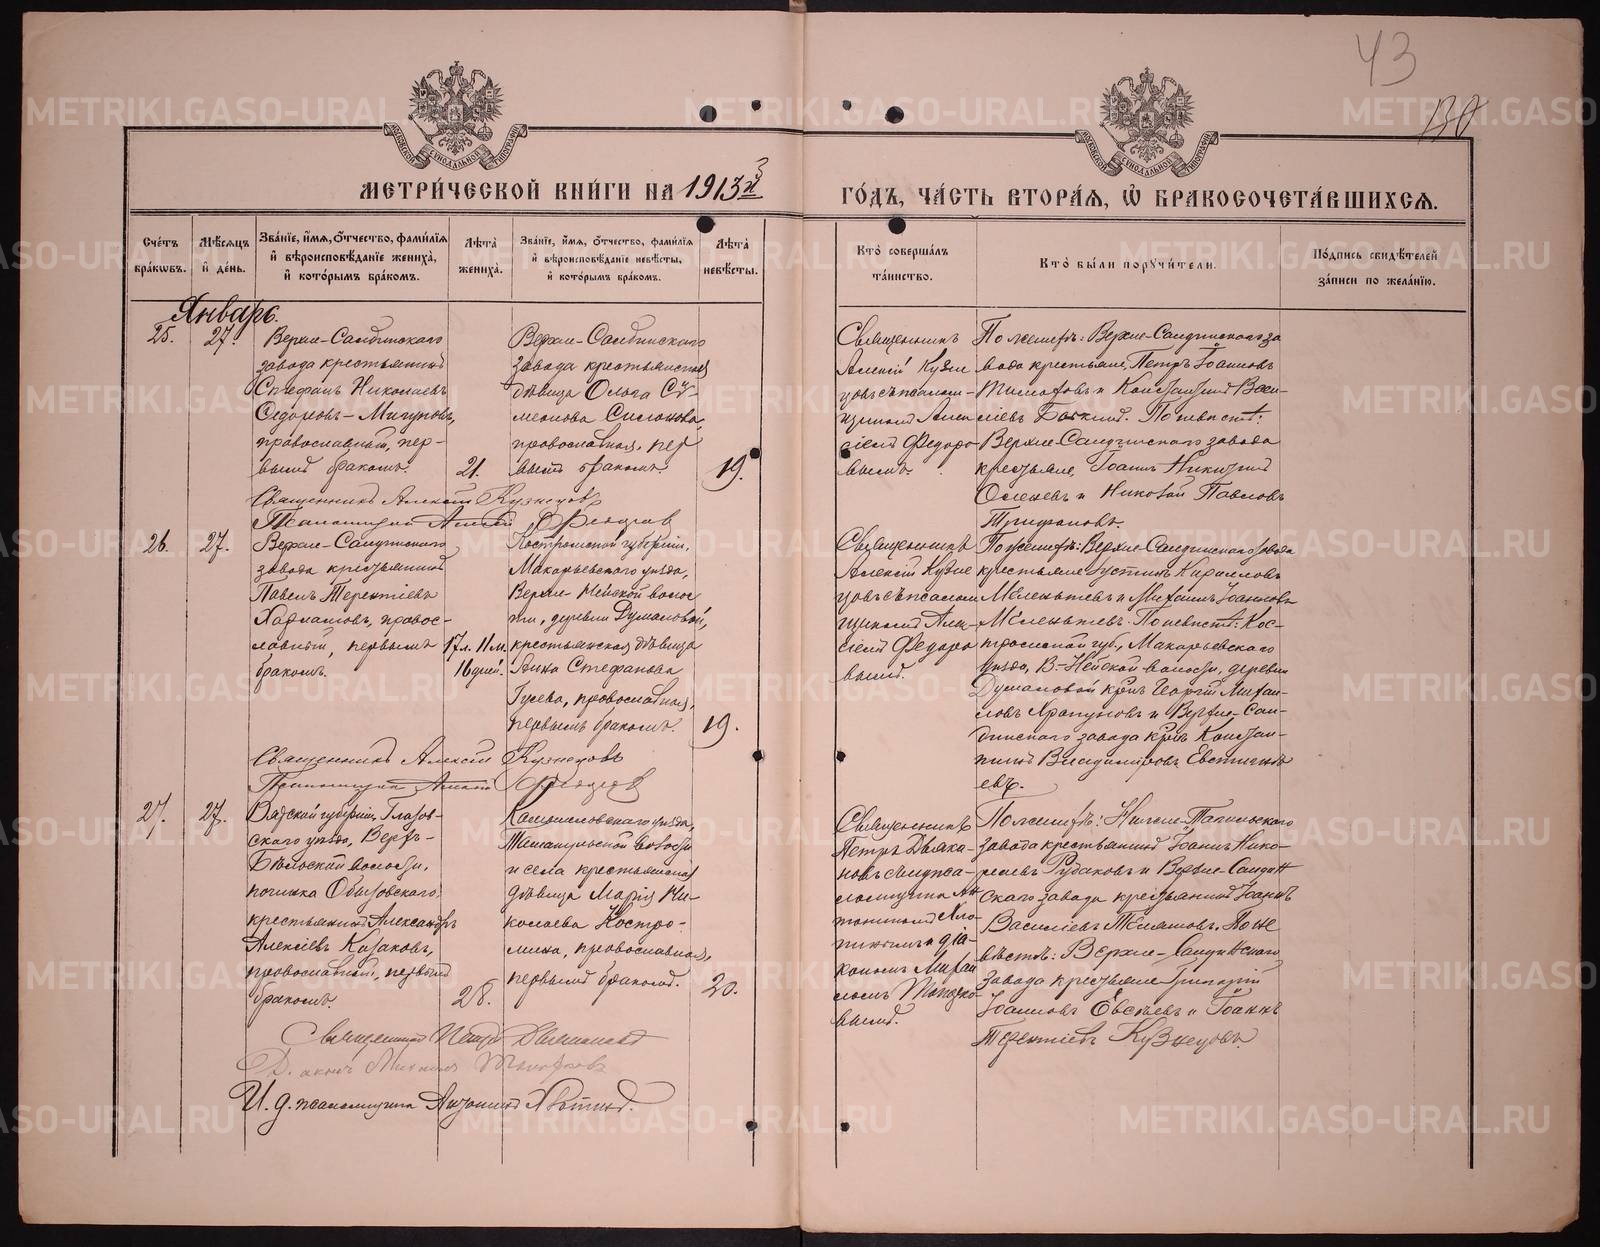 43
130
МОСКОВСКОЙ СУНОДАЛЬНОЙ ТИПОГРАФІИ
МОСКОВСКОЙ СУНОДАЛЬНОЙ ТИПОГРАФІИ
МЕТРИ́ЧЕСКОЙ КНИ́ГИ НА 1913й
ГО́ДЪ, ЧА́СТЬ ВТОРА́Я, Ѽ БРАКОСОЧЕТА́ВШИХСЯ.
Сче́тъ бра́кѡвъ.
Мѣ́сяцъ и҆ де́нь.
Зва́нїе, и҆́мя, ѻ҆́тчество, фами́лїя и҆ вѣроисповѣ́данїе жениха̀, и҆ кото́рымъ бра́комъ.
Лѣ́та жениха̀.
Зва́нїе, и҆́мя, ѻ҆́тчество, фами́лїя и҆ вѣроисповѣ́данїе невѣ́сты, и҆ кото́рымъ бра́комъ.
Лѣ́та невѣ́сты.
Кто̀ соверша́лъ та́инство.
Кто̀ бы́ли порꙋчи́тели.
По́дпись свидѣ́телей за́писи по жела́нїю.
Январь.
25.
27.
Верхне-Салдинскаго
завода крестьянинъ
Стефанъ Николаевъ
Сидоровъ-Мичуровъ,
православный, пер-
вымъ бракомъ.
21.
Верхне-Салдинскаго
завода крестьянская
дѣвица Ольга Сѵ-
меонова
православная, пер
вымъ бракомъ.
19.
Священникъ
Алексій Кузне
цовъ съ псалом-
щикомъ Алек
сіемъ Федоро
вымъ.
По женихѣ: Верхне-Салдинскаго за
вода крестьяне, Петръ Іоанновъ
и Константинъ Васи-
ліевъ По невѣстѣ:
Верхне-Салдинскаго завода
крестьяне, Іоаннъ Никитинъ
и Николай Павловъ
Трифоновъ.
Священникъ Алексій Кузнецовъ
Псаломщикъ Алексій Федоровъ
26.
27.
Верхне-Салдинскаго
завода крестьянинъ
Павелъ Терентіевъ
правос-
лавный, первымъ
бракомъ.
17 л. 11 м.
16 дней.
Костромской губерніи,
Макарьевскаго уѣзда,
Верхне-Нейской волос
ти, деревни Думановой,
крестьянская дѣвица
Анна Стефанова
Гусева, православная,
первымъ бракомъ.
19.
Священникъ
Алексій Кузне
цовъ съ псалом
щикомъ Алек-
сіемъ Федоро
вымъ.
По женихѣ: Верхне-Салдинскаго завода
крестьяне Іустинъ Кирилловъ
и Михаилъ Іоанновъ
По невѣстѣ: Кос-
тромской губ., Макарьевскаго
уѣзда, В.-Нейской волости, деревни
Думановой кр-нъ Георгій Михаи-
ловъ Храпуновъ и Верхне-Сал-
динскаго завода кр-нъ Констан-
тинъ Владимировъ Евстигнѣ
евъ.
Священникъ Алексій Кузнецовъ
Псаломщикъ Алексій Федоровъ
27.
27.
Вятской губерніи, Глазов-
скаго уѣзда, Верхъ-
Бѣльской волости,
починка
крестьянинъ Александръ
Алексіевъ Казаковъ,
православный, первымъ
бракомъ.
28.
Камышловскаго уѣзда,
волости
и села крестьянская
дѣвица Марія Ни-
колаева Костро-
мина, православная,
первымъ бракомъ.
20.
Священникъ
Петръ Дьяко-
новъ съ и. пса-
ломщика Ан
тоніемъ
и діа-
кономъ Михаи
ломъ
вымъ.
По женихѣ: Нижне-Тагильскаго
завода крестьянинъ Іоаннъ Нико-
лаевъ Рудаковъ и Верхне-Салдин
скаго завода крестьянинъ Іоаннъ
Василіевъ По не
вѣстѣ: Верхне-Салдинскаго
завода крестьяне Григорій
Іоанновъ Евсѣевъ и Іоаннъ
Терентіевъ Кузнецовъ.
Священникъ Петръ Дьяконовъ
Діаконъ Михаилъ
И. д. псаломщика Антоній
METRIKI.GASO-URAL.RU